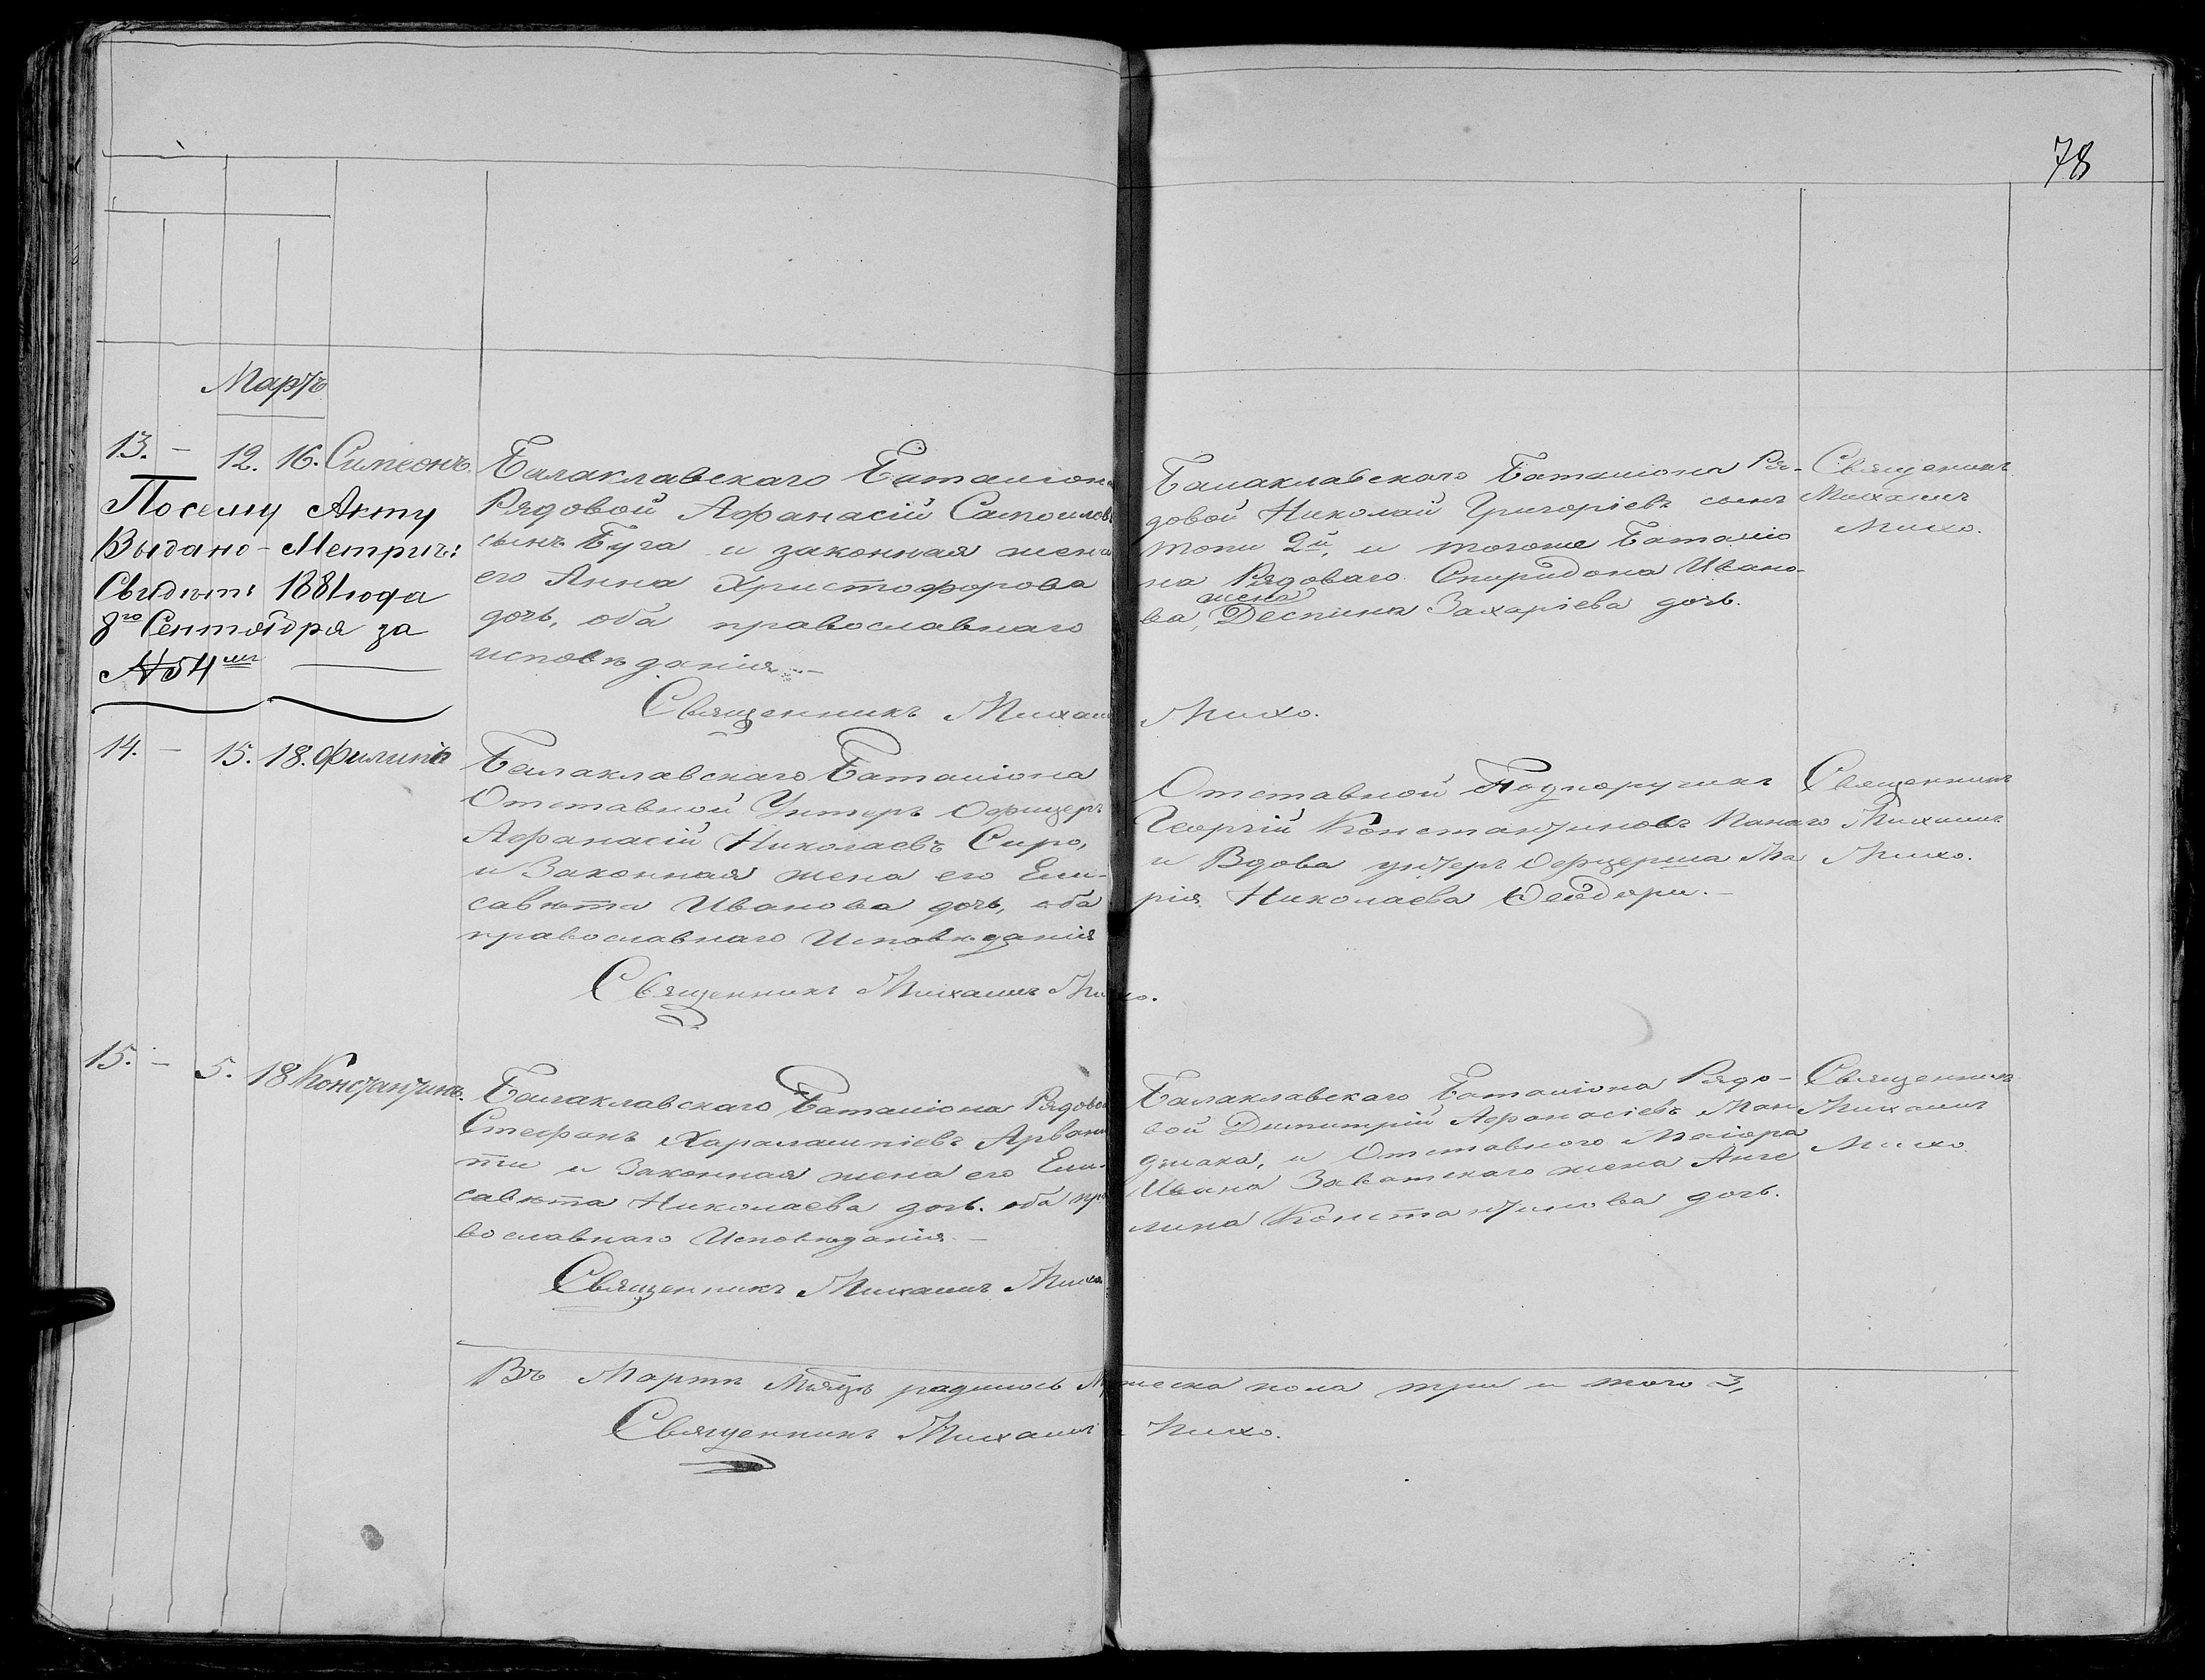 78
Мартъ
13. – 12. 16. Симеонъ.
Посему Акту
Выдано Метрич:
Свидѣт: 1881 года
8го Сентября за
№ 54м
Балаклавскаго Баталіона
Рядовой Афанасій Самоиловъ
сынъ Буга и законная жена
его Анна Христофорова
дочь, оба православнаго
исповѣданія. –
Священникъ Михаилъ Михо.
Балаклавскаго Баталіона Ря-
довой Николай Григоріевъ сынъ
Топи 2й, и тогоже Баталіо
на Рядоваго Спиридона Ивано-
ва, жена Деспина Захаріева дочь.
Священникъ
Михаилъ
Михо.
14. – 15. 18. Филипъ
Балаклавскаго Баталіона
Отставной Унтеръ Офицеръ
Афанасій Николаевъ Сиро,
и Законная жена его Ели-
савѣта Иванова дочь, оба
православнаго Исповѣданія
Священникъ Михаилъ Михо.
Отставной Подпоручикъ
Георгій Константиновъ Канаго
и Вдова унтеръ Офицерша Ма
рія Николаева Феодори. –
Священникъ
Михаилъ
Михо.
15. – 5. 18 Константинъ.
Балаклавскаго Баталіона Рядовой
Стефанъ Харалампіевъ Арвани
ти и Законная жена его Ели-
савѣта Николаева дочь. оба пра
вославнаго Исповѣданія –
Священникъ Михаилъ Михо
Балаклавскаго Баталіона Рядо-
вой Димитрій Афанасіевъ Ман
джака, и Отставного Маіора
Ивана Заватскаго жена Анге
лина Константинова дочь.
Священникъ
Михаилъ
Михо
Въ Мартѣ Мѣяцѣ радилось Мужеска пола три и того 3,
Священникъ Михаилъ Михо.